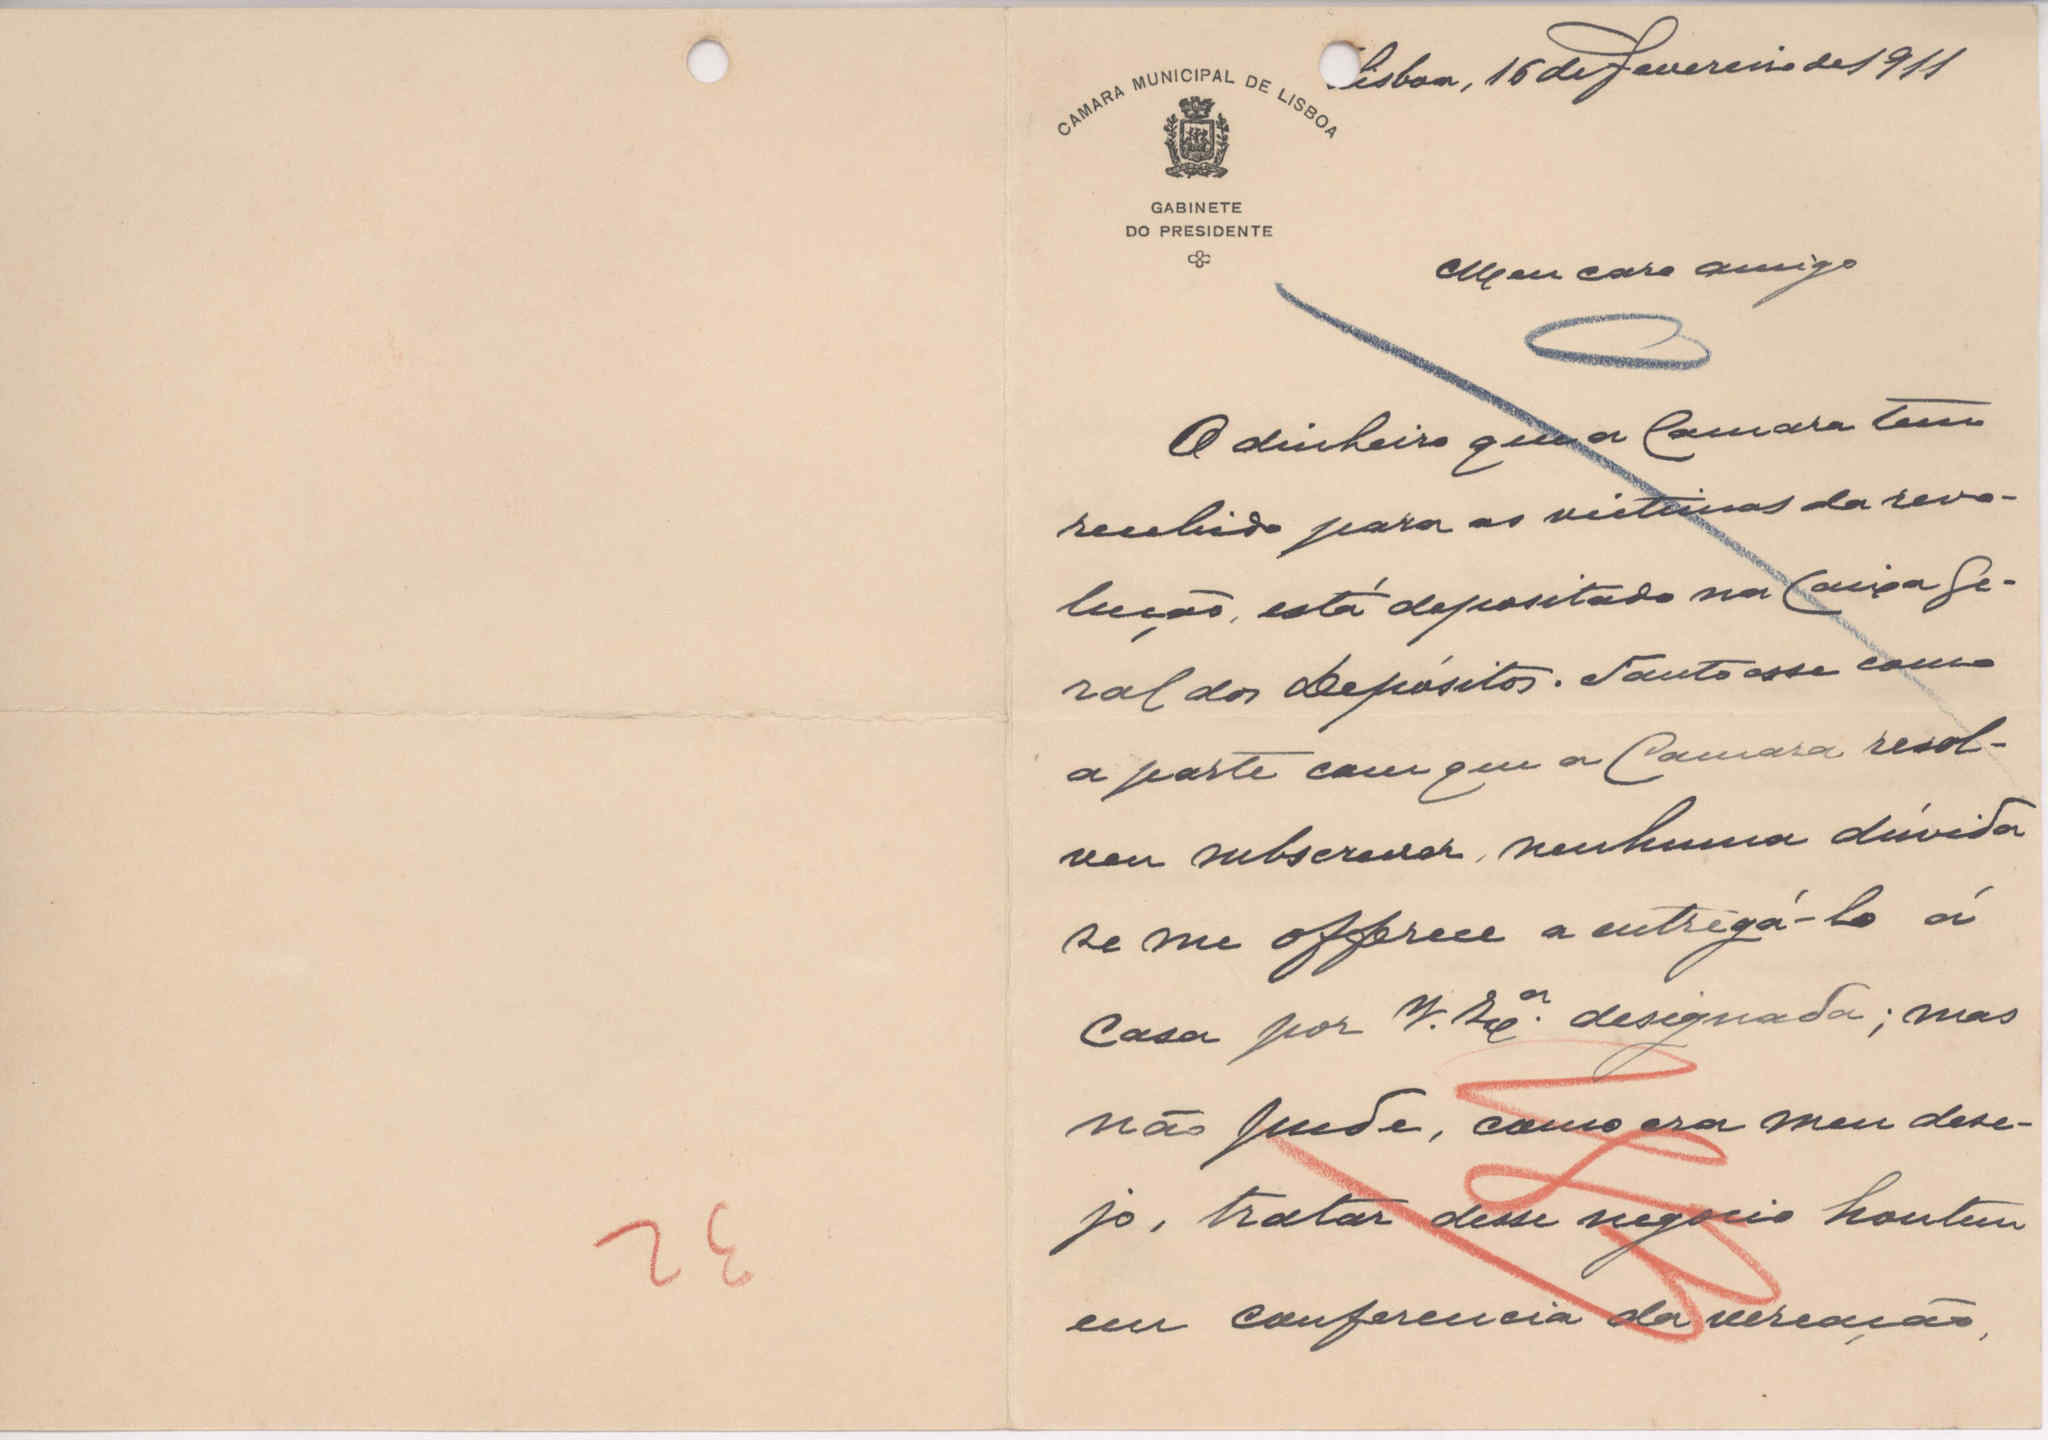 Lisboa, 16 de Fevereiro de 1911
CAMARA MUNICIPAL DE LISBOA
GABINETE
DO PRESIDENTE
Meu caro amigo
O dinheiro que a Camara tem
recebido para as victimas da revo-
lução, está depositado na Caixa Ge-
ral dos Depósitos. Tanto esse como
a parte com que a Camara resol-
veu subscrever, nenhuma dúvida
se me offerece a entregá-lo á
Casa por V. Exª. designada; mas
não pude, como era meu dese-
jo, tratar desse negocio hontem
em conferencia da vereação,
32